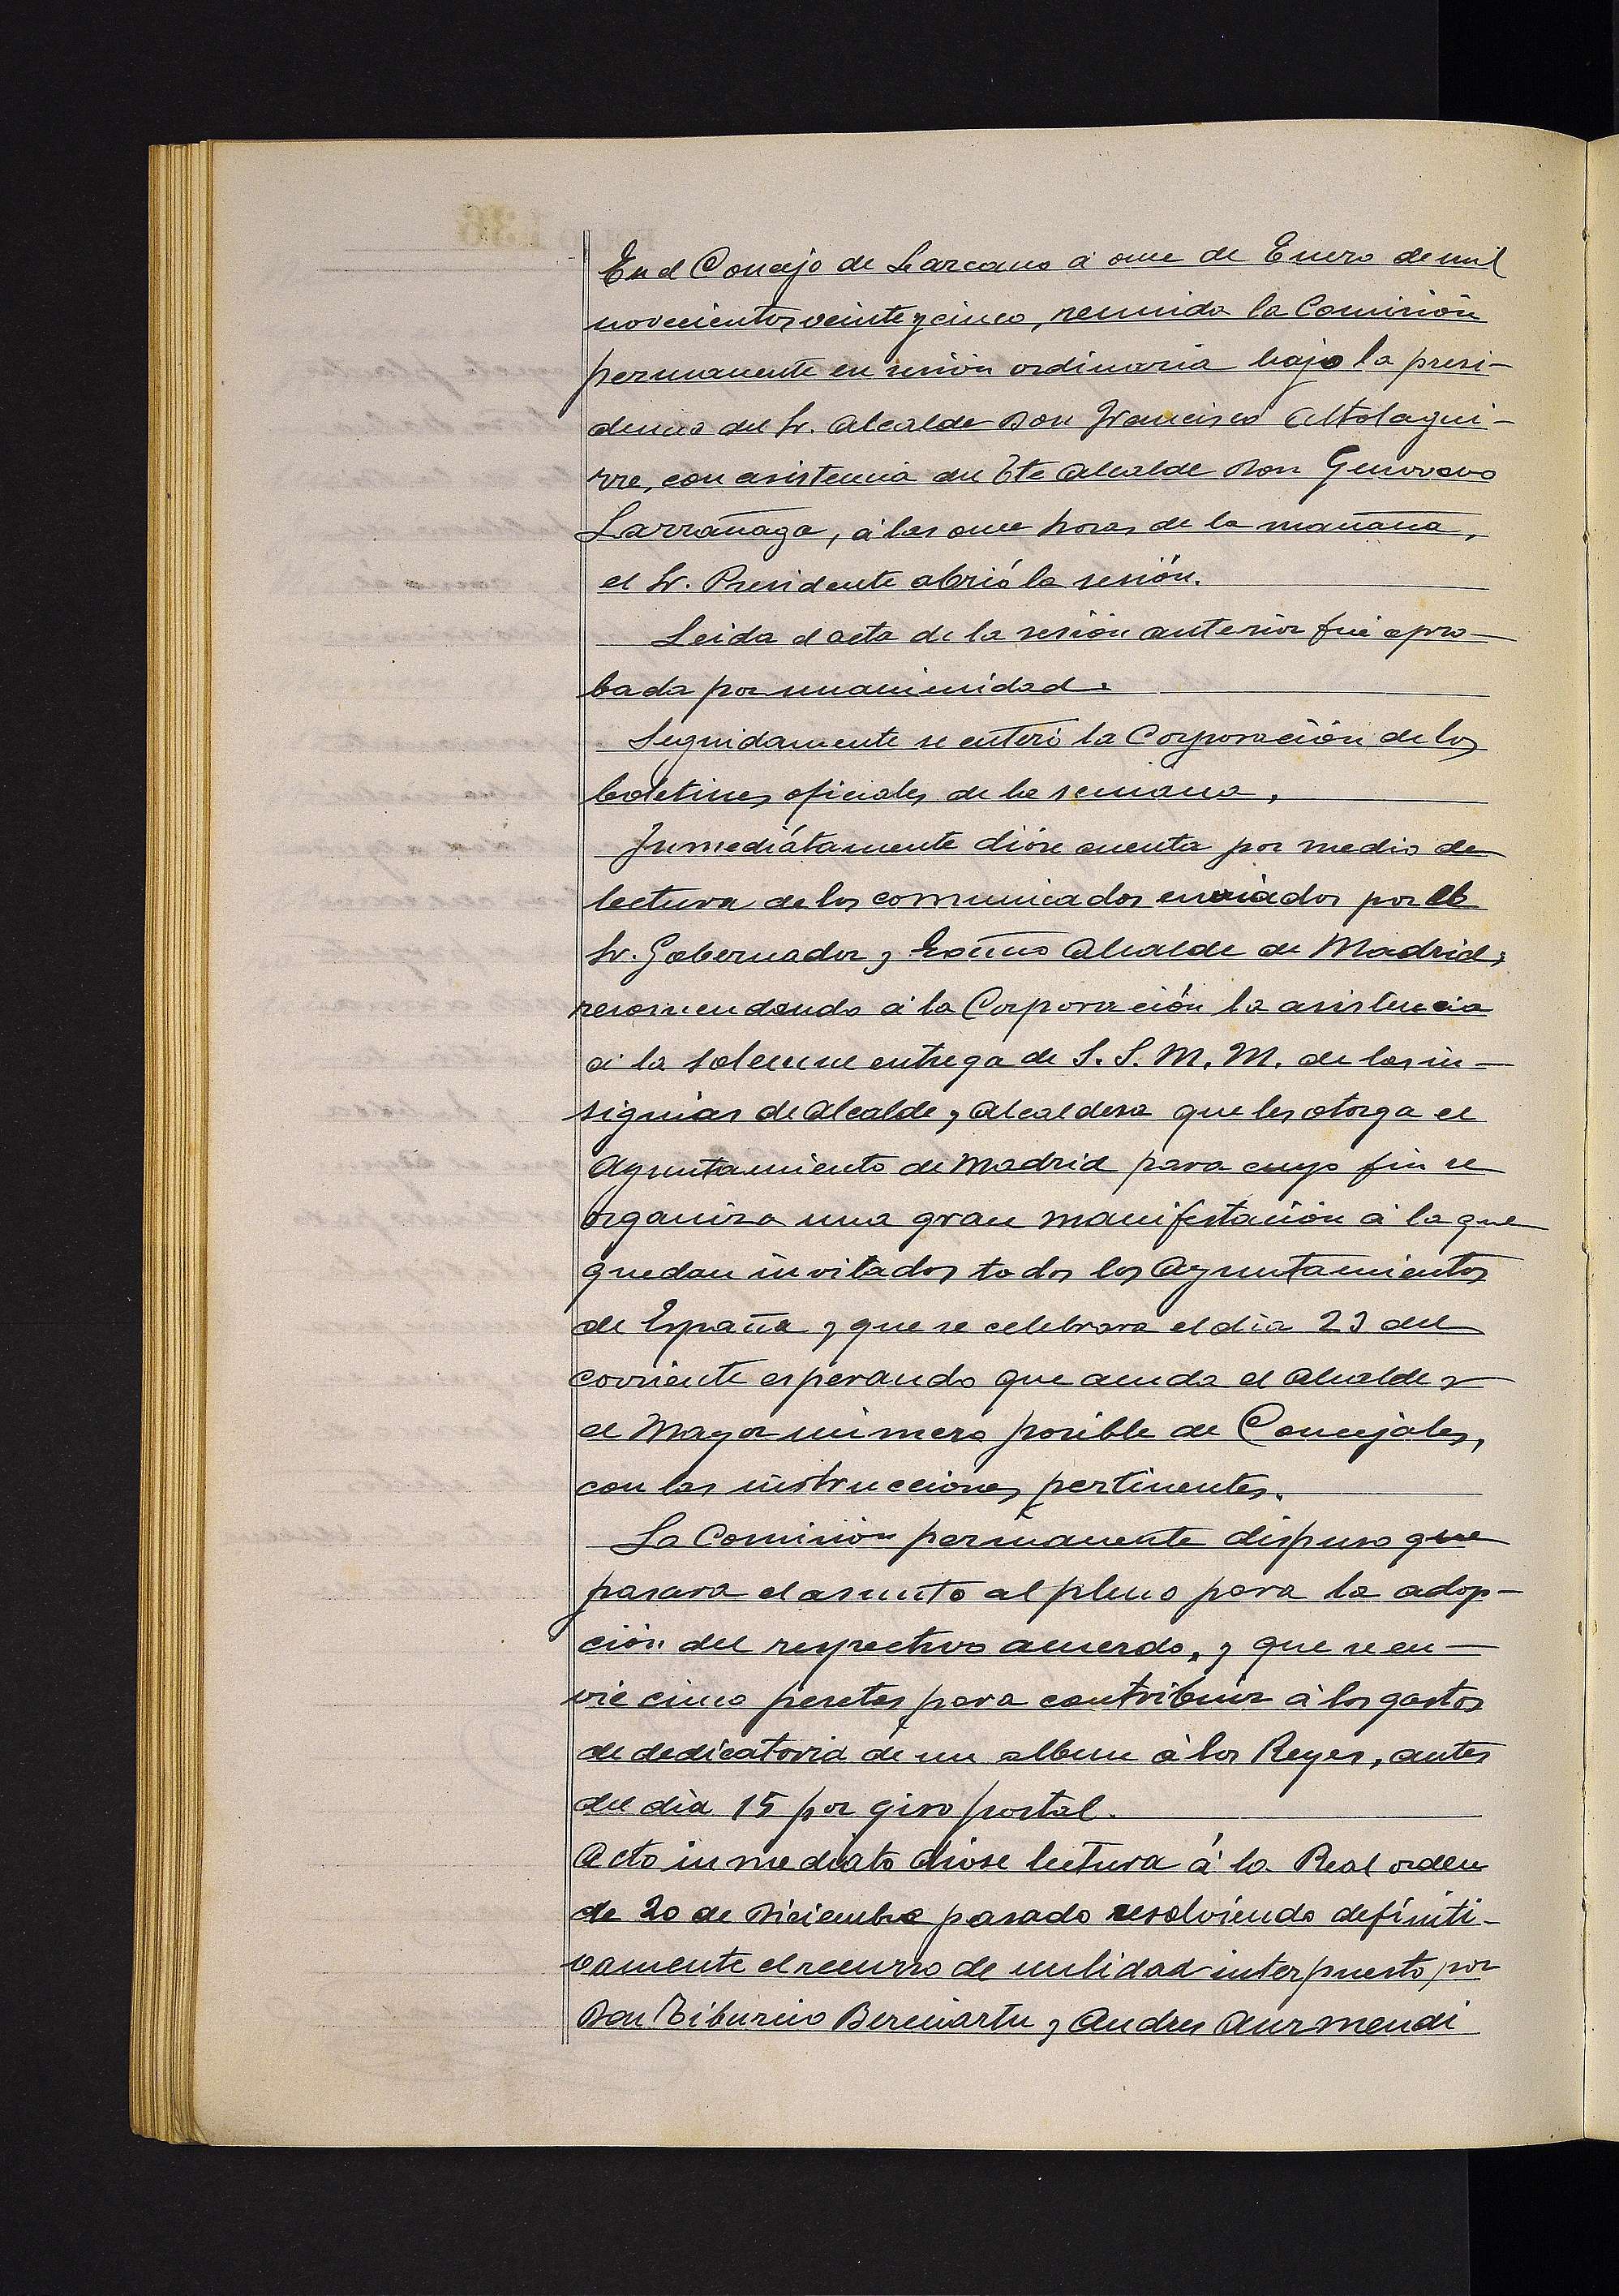 En el Concejo de Lazcano á once de Enero de mil
novecientos veinte y cinco, reunida la Comisión
permanente en sesión ordinaria bajo la presi-
dencia del Sr. Alcalde Don Francisco Altolagui-
rre, con asistencia del Tte Alcalde Don Genovevo
Larrañaga, á las once horas de la mañana,
el Sr. Presidente abrió la sesión.
Leida el acta de la sesión anterior fué apro-
bada por unanimidad.
Seguidamente se enteró la Corporación de los
boletines oficiales de la semana.
Inmediátamente dióse cuenta por medio de
lectura de los comunicados enviados por el
Sr. Gobernador y Excmo Alcalde de Madrid,
recomendando á la Corporación la asistencia
á la solemne entrega de S. S. M. M. de las in-
signias de Alcalde y Alcaldesa que les otorga el
Ayuntamiento de Madrid para cuyo fin se
organiza una gran manifestación á la que
quedan invitados todos los Ayuntamientos
de España y que se celebrara el dia 23 del
corriente esperando que acuda el Alcalde y
el Mayor número posible de Concejales,
con las instrucciones pertinentes.
La Comisión permanente dispuso que
pasara el asunto al pleno para la adop-
ción del respectivo acuerdo, y que se en-
vie cinco pesetas para contribuir á los gastos
de dedicatoria de un album á los Reyes, antes
del dia 15 por giro postal.
Acto inmediato dióse lectura á la Real orden
de 20 de Diciembre pasado resolviendo definiti-
vamente el recurso de nulidad interpuesto por
Don Tiburcio Bereciartu y Andres Aurmendi